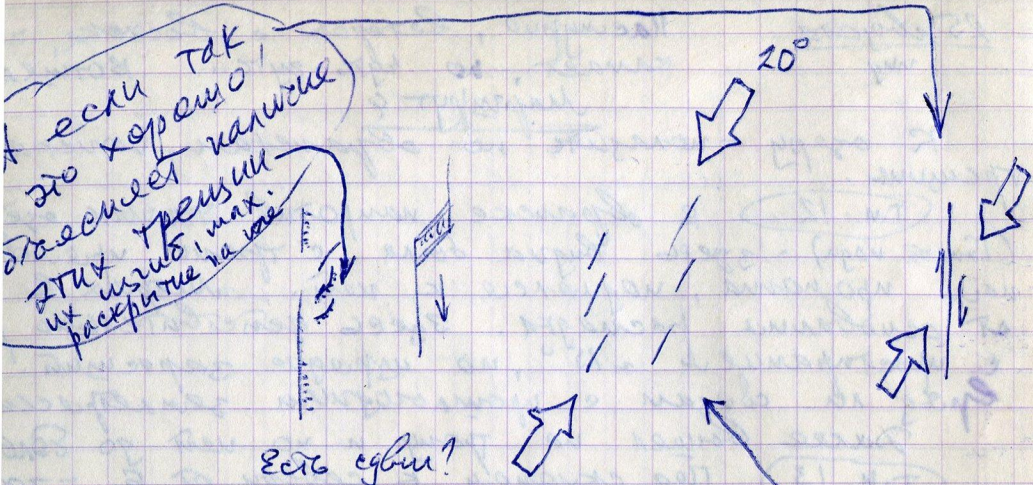 А если так
это хорошо
объясняет наличие
этих трещин
их изгиб! max.
раскрытие на юге
20°
Есть сдвиг?